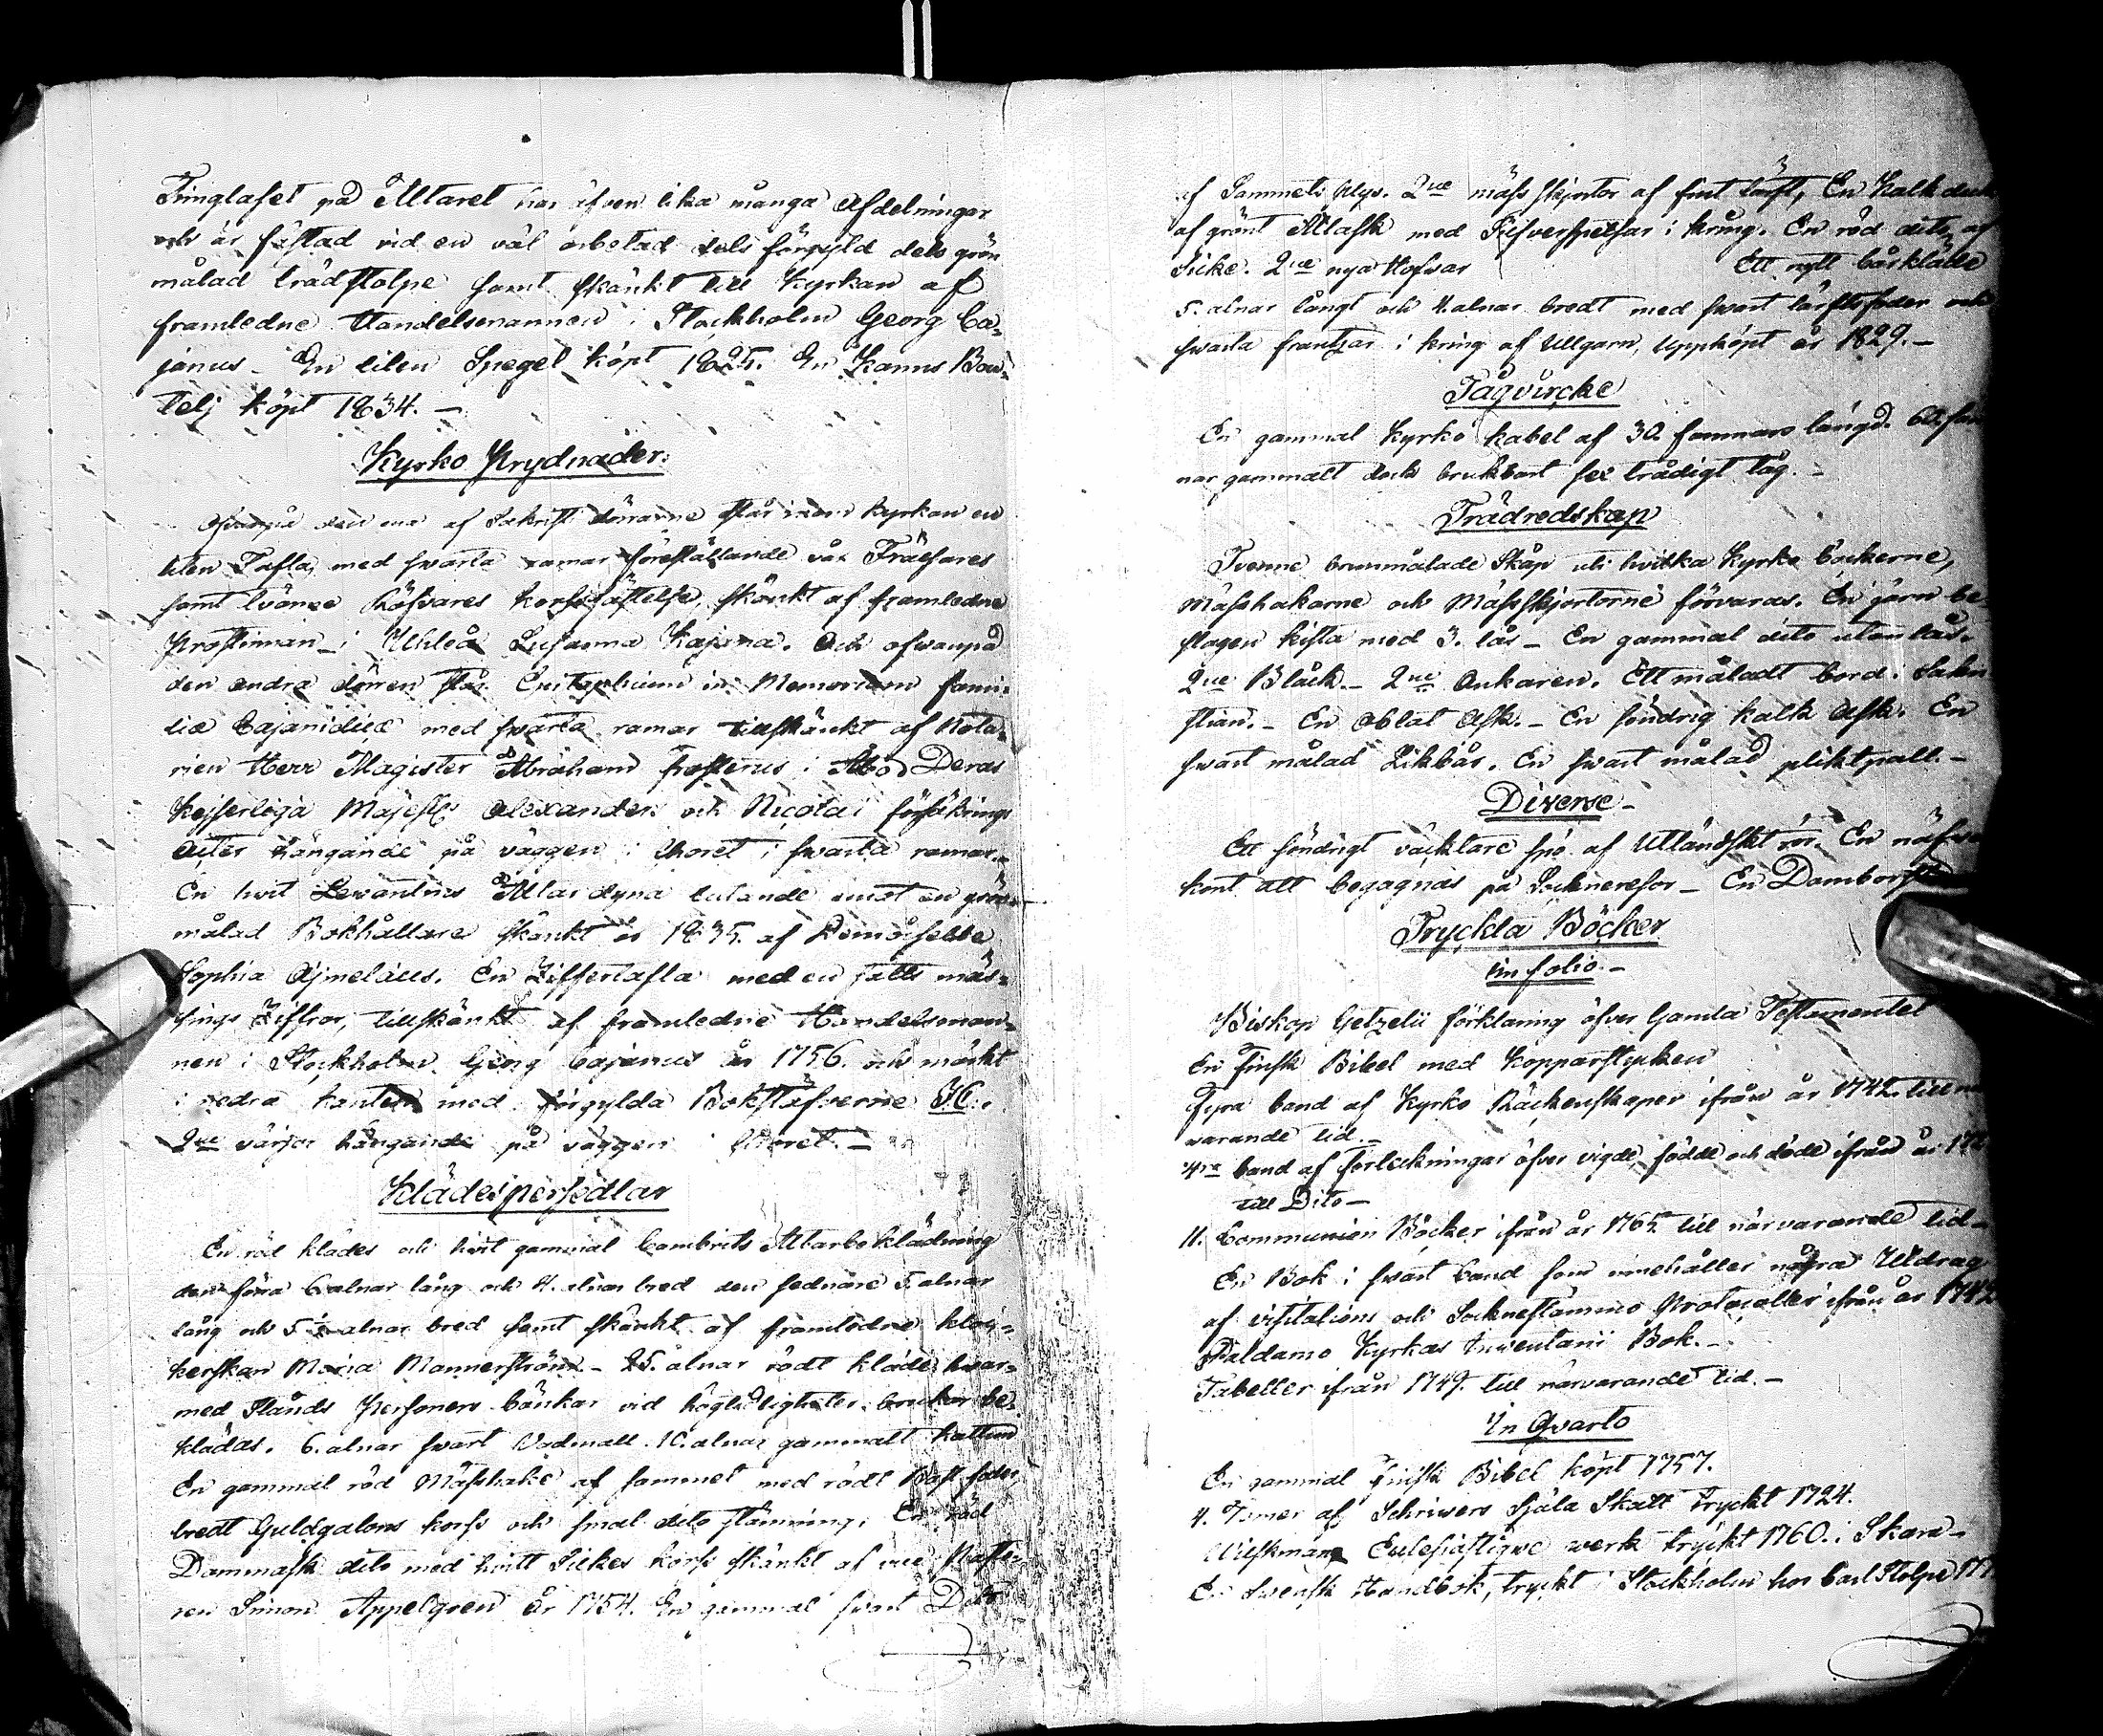 Timglaset på Altaret har äfven lika många Afdelningar
och är fästad vid en väl arbetad dels förgyld dels grön
målad trädstolpe samt skänkt till Kyrkan af
framledne Handelsmannen i Stockholm Georg Ca=
janus. En liten Spegel köpt 1825. En Kanns Bou=
telj köpt 1834. —
Kyrko Prydnader.
Ofvanpå den ena af Sakristi dörarne står inom Kyrkan en
liten Tafla, med svarta ramar föreställande vår Frälsares
samt tvänne Röfvares korssfästelse, skänkt af framledne
Prostinnan i Uhleå Susanna Kajana. Och ofvanpå
den andra dörren står Epitaphium in Memoriam fami=
liæ Cajanidicæ med svarta ramar tillskänkt af Nota=
rien Herr Magister Abraham Frosterus i Åbo Deras
Kejserliga Majest: Alexanders och Nicolai försäkrings
Acter hängande på väggen i Choret i svarta ramar.
En hvit Levantins Altar dyna lutande emot en grön
målad Bokhållare skänkt år 1835. af Demoiselle
Sophia Ajmelæus. En Ziffertafla med en satts mäs=
sings Ziffror, tillskänkt af framledne Handelsman=
nen i Stockholm Georg Cajanus år 1756. och märkt
i nedra kanten med förgylda Bokstäfverne G.C.
2ne värjor hängande på väggen i Choret. —
Klädespersedlar
En röd klädes och hvit gammal Cambrits Altarbeklädning
den förra 6 alnar lång och 4. alnar bred den sednare 5. alnar
lång och 5 ½ alnar bred samt skänkt af framledne kloc=
kerskan Maria Mannerström — 25. alnar rödt kläde hvar=
med Stånds Personers bänkar vid högtidligheter bruka be=
klädas. 6. alnar svart Vadmall. 10. alnar gammalt kattun
En gammal röd Mässhake af sammet med rödt Raskfoder,
bredt Guldgalons korss och smal dito stämning. En röd
Dammask dito med hvitt Silkes korss skänkt af vice Pasto=
ren Simon Appelgren år 1754. En gammal svart Dito
af Sammets Plys. 2ne mäss skjortor af fint lärft, En Kalk duk
af grönt Atlask med Silfverspetsar i kring. En röd dito af
Sicke. 2ne nya Hofvar Ett nytt bårkläde
5. alnar långt och 4. alnar bredt med svart lärftsfoder och
svarta frantzar i kring af Ullgarn, Uppköpt år 1829. —
Tågvircke
En gammal Kyrko kabel af 30. famnars längd. 60. fam
nar gammalt dock brukbart sex trådigt tåg. —
Trädredskap
Tvenne brunmålade Skåp uti hvilka Kyrko böckerne,
Mässhakarne och Mässskjortorne förvaras. En järn be=
slagen kista med 3. lås — En gammal dito utan lås.
2ne Bläck — 2ne Ankaren. Ett måladt bord i Sakri
stian. — En Oblat Ask. — En söndrig kalk Ask. En
svart målad Likbår. En svart målad pliktpall. —
Diverse —
Ett söndrigt väcktare spö af Utländskt rör. En näfver
kont att begagnas på Sockneresor — En Domborst
Tryckta Böcker
in folio. —
Biskop Getzelii förklaring öfver Gamla Testamentet
En Finsk Bibel med Kopparstycken
Fyra band af Kyrko Räckenskaper ifrån år 1742. till när
varande tid. —
4ra band af förteckningar öfver vigde, födde och döde ifrån år 172
till Dito —
11. Communion Böcker ifrån år 1765. till närvarande tid —
En Bok i svart band som innehåller några Utdrag
af visitations och Sockneståmmo Protocoller ifrån år 1742
Paldamo Kyrkas Inventarii Bok. —
Tabeller ifrån 1749. till närvarande tid. —
In Qvarto
En gammal Finsk Bibel köpt 1757.
4. Tomer af Schrivers Själa Skatt tryckt 1724.
Wilskmans Eclesiastiqve werk tryckt 1760. i Skara —
En Svensk Handbok, tryckt i Stockholm hos Carl Stolpe 17